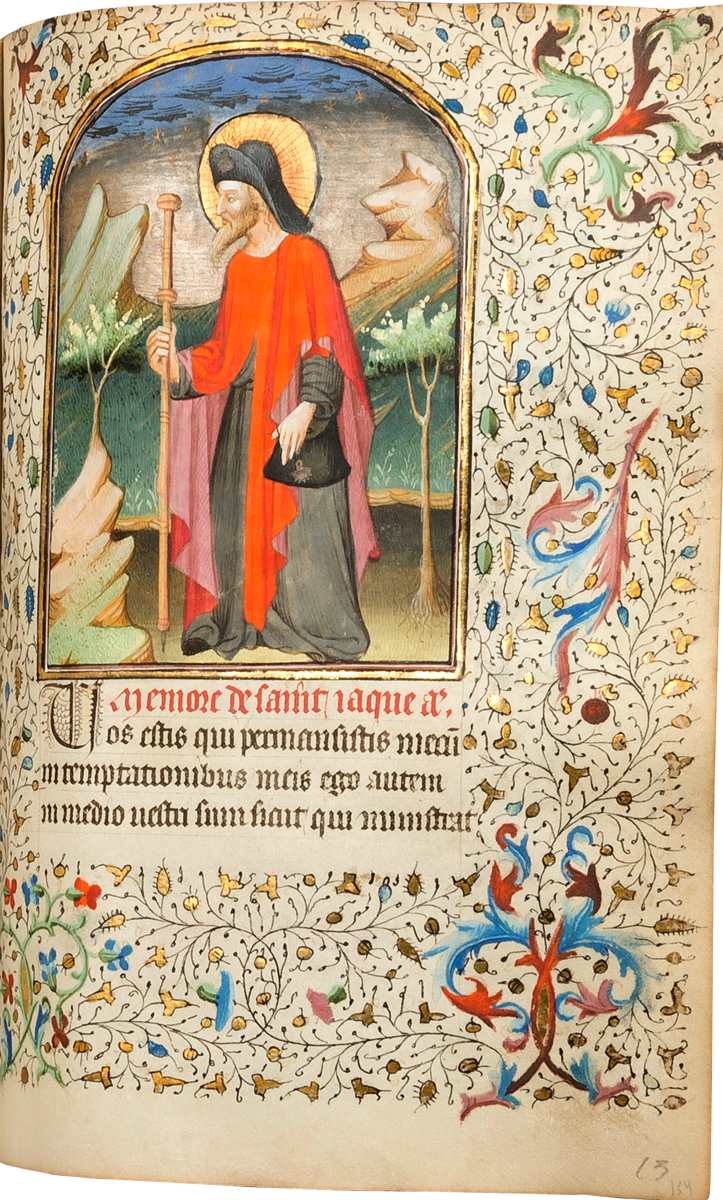 Memore de saint iaque ār.
Vos estis qui permansistis mecū
in temptationibus meis ego autem
in medio uestri sum sicut qui ministrat
13
134